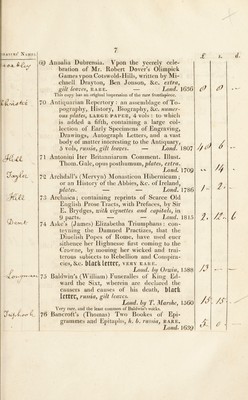 7
£ s. d.
69 Annalia Dubrensia. Vpon the yeerely cele-
bration of Mr. Robert Dover's Olimpick
Games vpon Cotswold-Hills, written by Mi-
chaell Drayton, Ben Jonson, &c. extra,
gilt leaves, RARE. — Lond. 1636
This copy has an original impression of the rare frontispiece.
70 Antiquarian Repertory: an assemblage of To-
pography, History, Biography, &c. numer-
ous plates, LARGE PAPER, 4 vols: to which
is added a fifth, containing a large col-
lection of Early Specimens of Engraving,
Drawings, Autograph Letters, and a vast
body of matter interesting to the Antiquary,
5 vols, russia, gilt leaves. — Lond. 1807
71 Antonini Iter Britanniarum Comment. Illust.
Thom. Gale, opus posthumum, plates, extra.
Lond. 1709
Taylor
72 Archdall's (Mervyn) Monasticon Hibernicum;
or an History of the Abbies, &c. of Ireland,
plates. — — Lond. 1786
Hill
73 Archaica; containing reprints of Scarce Old
English Prose Tracts, with Prefaces, by Sir
E. Brydges, with vignettes and capitals, in
9 parts. — — Lond. 1815
74 Aske's (James) Elizabetha Triumphans: con-
teyning the Damned Practizes, that the
Diuelish Popes of Rome, have used euer
sithence her Highnesse first coming to the
Crowne, by mouing her wicked and trai-
terous subiects to Rebellion and Conspira-
cies, &c. black letter, VERY RARE.
Lond. by Orwin, 1588
75 Baldwin's (William) Funeralles of King Ed-
ward the Sixt, wherein are declared the
causers and causes of his death, black
letter, russia, gilt leaves.
Lond. by T. Marshe, 1560
Very rare, and the least common of Baldwin's works.
76 Bancroft's (Thomas) Two Bookes of Epi-
grammes and Epitaphs, h. b. russia, RARE.
Lond. 1639